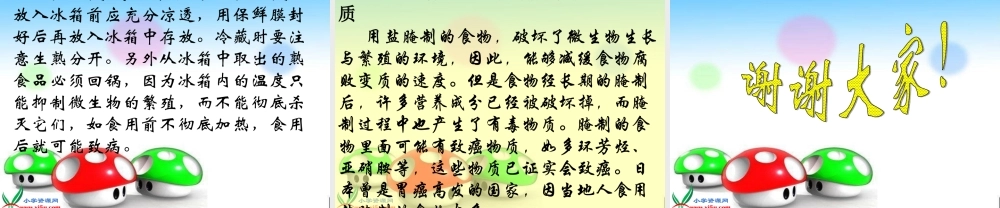 放入冰箱前应充分凉透，用保鲜膜封
好后再放入冰箱中存放。冷藏时要注
意生熟分开。另外从冰箱中取出的熟
食品必须回锅，因为冰箱内的温度只
能抑制微生物的繁殖，而不能彻底杀
灭它们，如食用前不彻底加热，食用
后就可能致病。
小学资源网
质
用盐腌制的食物，破坏了微生物生长
与繁殖的环境，因此，能够减缓食物腐
败变质的速度。但是食物经长期的腌制
后，许多营养成分已经被破坏掉，而腌
制过程中也产生了有毒物质。腌制的食
物里面可能有致癌物质，如多环芳烃、
亚硝胺等，这些物质已证实会致癌。日
本曾是胃癌高发的国家，因当地人食用
小学资源网
谢谢大家！
小学资源网